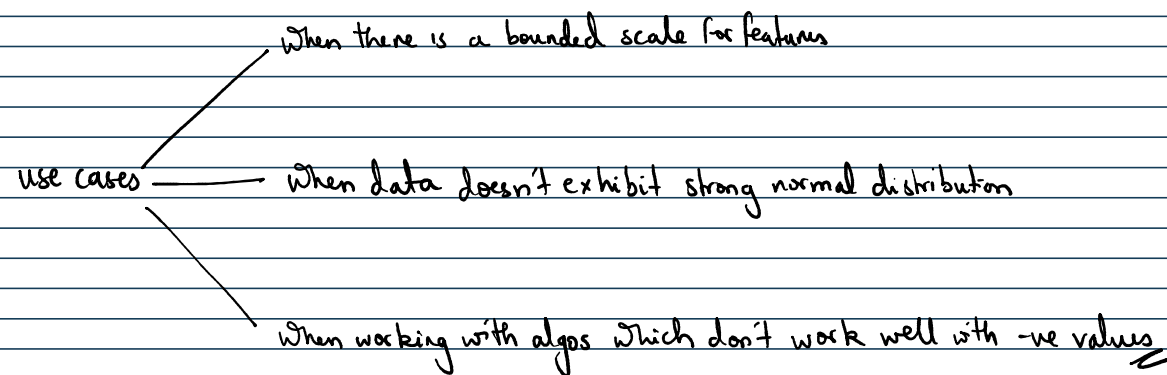 When there is a bounded scale for features
use cases
When data doesn't exhibit strong normal distribution
When working with algos which don't work well with -ve values